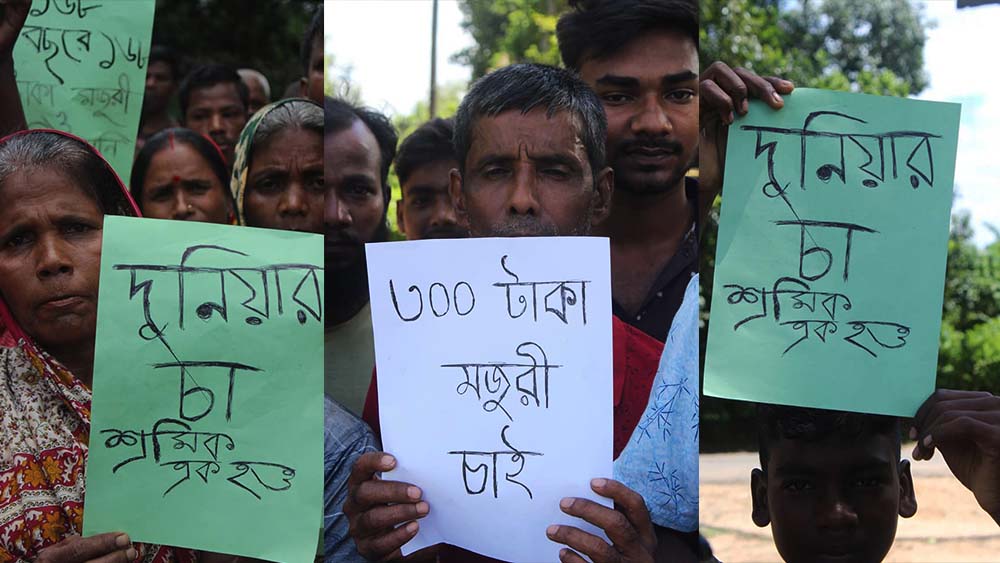 বছরে ১৬৮
মজুরী
দূনিয়ার
চা
শ্রমিক
এক হও
৩০০ টাকা
মজুরী
চাই
দূনিয়ার
চা
শ্রমিক
এক হও